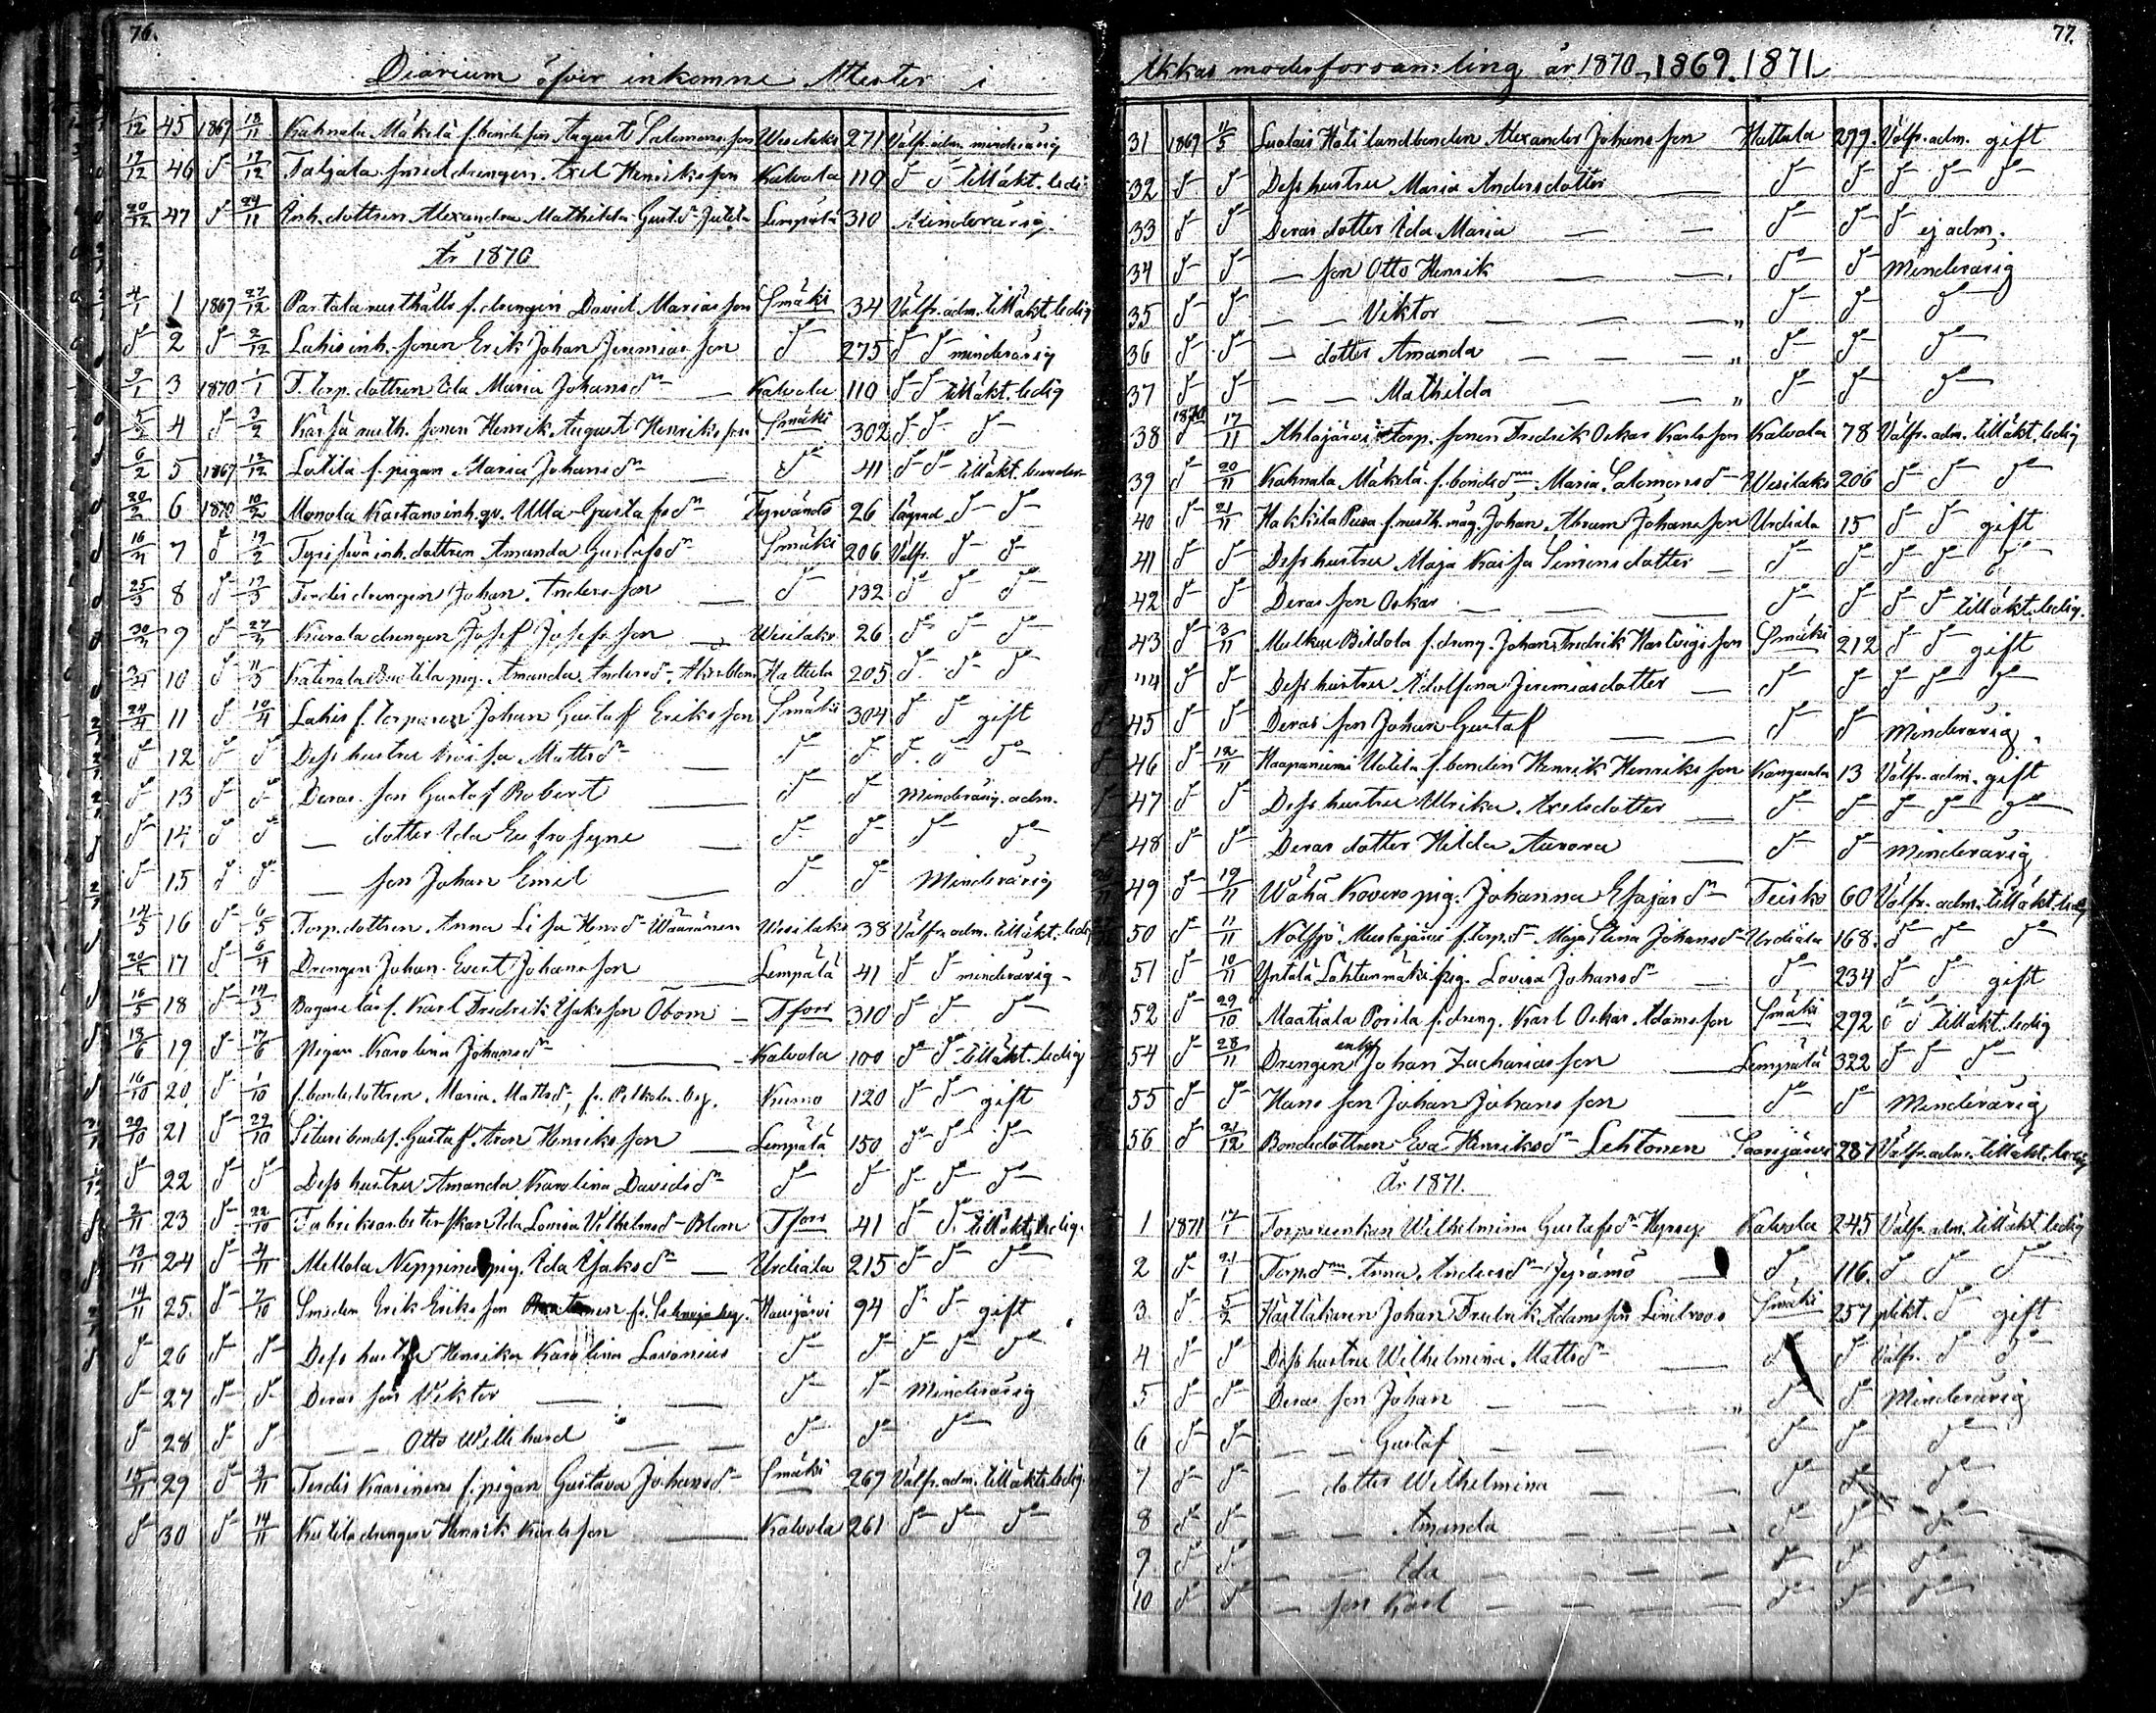 76.
Diarium öfver inkomne Attester i
1/12 45 1869 18/11 Kahnala Mäkelä f. bondeson August Salomonsson Wesilaks 271 Välfr. adm. minderårig
17/12 46 d° 17/12 Taljala smeddrengen Axel Henriksson Kalvola 110 d° d° till äkt. ledig
20/12 47 d° 24/11 Inh. dottren Alexandra Mathilda Gust. dr Lempälä 310 Minderårig.
År 1870
4/1 1 1869 27/12 Partala rusthålls f. drengen David Mariasson Smäki 34 Välfr. adm. till äkt. ledig
d° 2 d° 2/12 Lahis inh. sonen Erik Johan Jeremiasson d° 275 d° d° minderårig
9/1 3 1870 1/1 T. torp. dottren Ida Maria Johansdr Kalvola 110 d° d° till äkt. ledig
4 d° 3/2 rusth. sonen Henrik August Henriksson Smäki 302 d° d° d°
6/2 5 1869 12/12 f. pigan Maria Johansdr d° 41 d° d° till äkt.
20/2 6 1870 10/2 Monola inh. qv. Ulla Gustafsdr Tyrvändö 26 d° d°
7 d° 19/2 inh. dottren Amanda Gustafsdr Smäki 206 Välfr. d° d°
25/3 8 d° 17/3 Terdis drengen Johan Andersson d° 132 d° d° d°
30/3 9 d° drengen Josef Josefsson Wesilaks 26 d° d° d°
3/4 10 d° 11/3 Katinala pig. Amanda Andersdr Hattula 205 d° d° d°
24/4 11 d° 10/4 Lahis f. torparen Johan Gustaf Eriksson Smäki 304 d° d° gift
d° 12 d° d° Dess hustru Kaisa Mattsdr d° d° d° d° d°
d° 13 d° d° Deras son Gustaf Robert d° d° Minderårig. adm.
d° 14 d° d° — dotter Ida Eufrosyne d° d° d° d°
d° 15 d° d° — son Johan Emil d° d° Minderårig
14/5 16 d° 6/5 Torp. dottren Anna Lisa Henr. dr Wäänänen Wesilaks 38 Välfr. adm. till äkt. ledig
17 d° 6/4 Drengen Johan Evert Johansson Lempälä 41 d° d° minderårig
16/5 18 d° Bagare lär f. Karl Fredrik Isaksson Öbom Tfors 310 d° d° d°
18/6 19 d° 17/6 Pigan Karolina Johansdr Kalvola 100 d° d° till äkt. ledig
16/10 20 d° 1/10 f. bondedottren Maria Mattsdr Kuvmo 120 d° d° gift
29/10 21 d° 29/10 bondes. Gustaf Aron Henriksson Lempälä 150 d° d° d°
d° 22 d° d° Dess hustru Amanda Karolina Davidsdr d° d° d° d° d°
2/11 23 d° 22/10 Fabriksarbeterskan Ida Lovisa Wilhelmsdr Blom Tfors 41 d° d° till äkt. ledig.
13/11 24 d° 4/11 Mellola pig. Ida Isaksdr Urdiala 215 d° d° d°
14/11 25 d° 7/10 Smeden Erik Eriksson Hausjärvi 94 d° d° gift
d° 26 d° d° Dess hustru Henrika Karolina Lavonius d° d° d° d° d°
d° 27 d° d° Deras son Viktor d° d° Minderårig
d° 28 d° d° — — Otto Willehard d° d° d°
15/11 29 d° 9/11 Terdis f. pigan Gustava Johansdr Smäki 267 Välfr. adm. till äkt. ledig.
d° 30 d° 14/11 drengen Henrik Karlsson Kalvola 261 d° d° d°
77.
Akkas moderförsamling år 1870, 1869. 1871
31 1869 11/5 landbonden Alexander Johansson Hattula 299. Välfr. adm. gift
32 d° d° Dess hustru Maria Andersdotter d° d° d° d° d°
33 d° d° Deras dotter Ida Maria d° d° d° ej adm.
34 d° d° — son Otto Henrik d° d° Minderårig
35 d° d° — — Viktor d° d° d°
36 d° d° — dotter Amanda d° d° d°
37 d° d° — — Mathilda d° d° d°
38 1870 17/11 Ahlajärvi torp. sonen Fredrik Oskar Karlsson Kalvola 78 Välfr. adm. till äkt. ledig
39 d° 20/11 Kahnala Mäkelä f. bondedr Maria Salomonsdr Wesilaks 206 d° d° d°
40 d° 21/11 Hakkila f. rusth. måg. Johan Abram Johansson Urdiala 15 d° d° gift
41 d° d° Dess hustru Maja Kaisa Simonsdotter d° d° d° d° d°
42 d° d° Deras son Oskar d° d° d° d° till äkt. ledig.
43 d° 3/11 f. dreng. Johan Fredrik Hartvigsson Smäki 212 d° d° gift
44 d° d° Dess hustru Adolfina Jeremiasdotter d° d° d° d° d°
45 d° d° Deras son Johan Gustaf d° d° Minderårig.
46 d° 12/11 Haapaniemi f. bonden Henrik Henriksson Kangasala 13 Välfr. adm. gift
47 d° d° Dess hustru Ulrika Axelsdotter d° d° d° d° d°
48 d° d° Deras dotter Hilda Aurora d° d° Minderårig
49 d° 19/11 Wähä Kovero pig. Johanna Esajasdr Teisko 60 Välfr. adm. till äkt. ledig
50 d° 11/11 Mustajärvi f. torp. dr Maja Stina Johansdr Urdiala 168. d° d° d°
51 d° 10/11 Yntälä Lähteenmäki pig. Lovisa Johansdr d° 234 d° d° gift
52 d° 29/10 Maatiala Porila f. dreng. Karl Oskar Adamsson Smäki 292 d° d° till äkt. ledig
54 d° 28/11 Drengen enkl. Johan Zachariasson Lempälä 322 d° d° d°
55 d° d° Hans son Johan Johansson d° d° Minderårig
56 d° 21/12 Bondedottren Eva Henriksdr Lehtonen Saarijärvi 287 Välfr. adm. till äkt. ledig
År 1871.
1 1871 17/1 Torpareenkan Wilhelmina Gustafsdr Kalvola 245 Välfr. adm. till äkt. ledig
2 d° 21/1 Torp. dr Anna Andersdr Jyrämö d° 116. d° d° d°
3. d° 5/2 Johan Fredrik Adamsson Lindroos Smäki 257 d° gift
4 d° d° Dess hustru Wilhelmina Mattsdr d° d° Välfr. d° d°
5 d° d° Deras son Johan d° d° Minderårig
6 d° d° — — Gustaf d° d° d°
7 d° d° — dotter Wilhelmina d° d° d°
8 d° d° — — Amanda d° d° d°
9. d° d° — — Ida d° d° d°
10 d° d° — son Karl d° d° d°